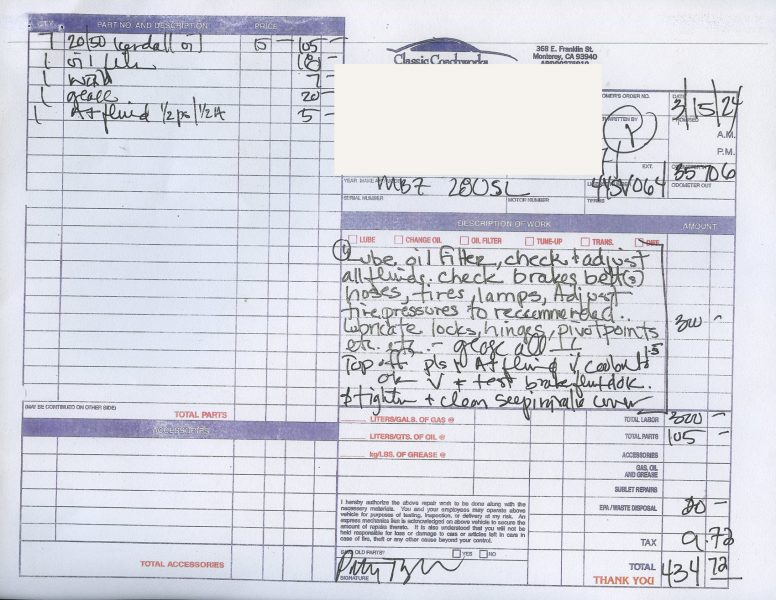 QTY. PART NO. AND DESCRIPTION PRICE
7 20/50 Kendall oil 15 - 105 -
1 oil filter 18 -
1 7 -
1 grease 20 -
1 AT fluid 1/2 ps/1/2 At 5 -
(MAY BE CONTINUED ON OTHER SIDE)
TOTAL PARTS
ACCESSORIES
TOTAL ACCESSORIES
Classic Coachworks
368 E. Franklin St.
Monterey, CA 93940
OMER'S ORDER NO. DATE
3/15/24
WRITTEN BY PROMISED
A.M.
P.M.
EXT.
35706
YEAR, MAKE MBZ 280SL 44SV064 ODOMETER OUT
SERIAL NUMBER MOTOR NUMBER TERMS
DESCRIPTION OF WORK AMOUNT
LUBE CHANGE OIL OIL FILTER TUNE-UP TRANS. DIFF.
Lube, oil filter, check & adjust
all fluids. check brakes belt(s)
hoses, tires, lamps, Adjust
tire pressures to recommended. 300 -
lubricate locks, hinges, pivot points
etc. etc. - grease all
Top off ps + AT fluid coolant
ok + test brake fluid ok.
tighten + clean seeping valve cover
LITERS/GALS. OF GAS @ TOTAL LABOR 300 -
LITERS/QTS. OF OIL @ TOTAL PARTS 105 -
kg/LBS. OF GREASE @ ACCESSORIES
GAS, OIL
AND GREASE
SUBLET REPAIRS
I hereby authorize the above repair work to be done along with the
necessary materials. You and your employees may operate above
vehicle for purposes of testing, inspection, or delivery at my risk. An
express mechanics lien is acknowledged on above vehicle to secure the
amount of repairs thereto. It is also understood that you will not be
held responsible for loss or damage to cars or articles left in cars in
case of fire, theft or any other cause beyond your control.
EPA / WASTE DISPOSAL 20 -
TAX 9.72
SAVE OLD PARTS? YES NO
SIGNATURE
TOTAL 434 72
THANK YOU